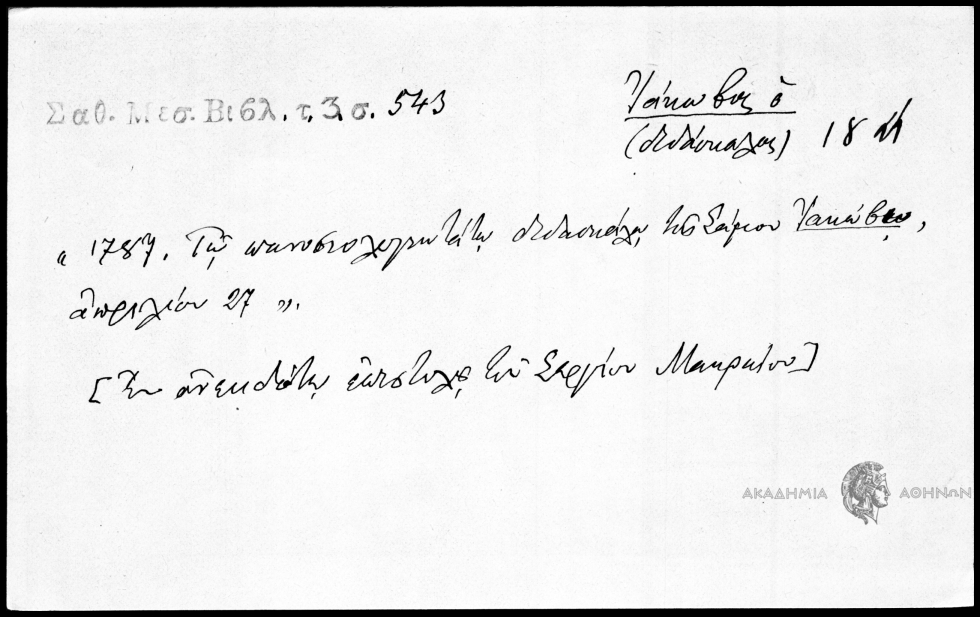 Σαθ. Μεσ. Βιβλ. τ. 3. σ. 543
Ἰάκωβος ὁ
(διδάσκαλος) 18
" 1787. Τῷ πανοσιολογιωτάτῳ διδασκάλῳ τῆς Σάμου Ἰακώβῳ,
ἀπριλίου 27 ".
[Ἐν ἀνεκδότῳ ἐπιστολῇ τοῦ Σεργίου Μακραίου]
ΑΚΑΔΗΜΙΑ ΑΘΗΝΩΝ